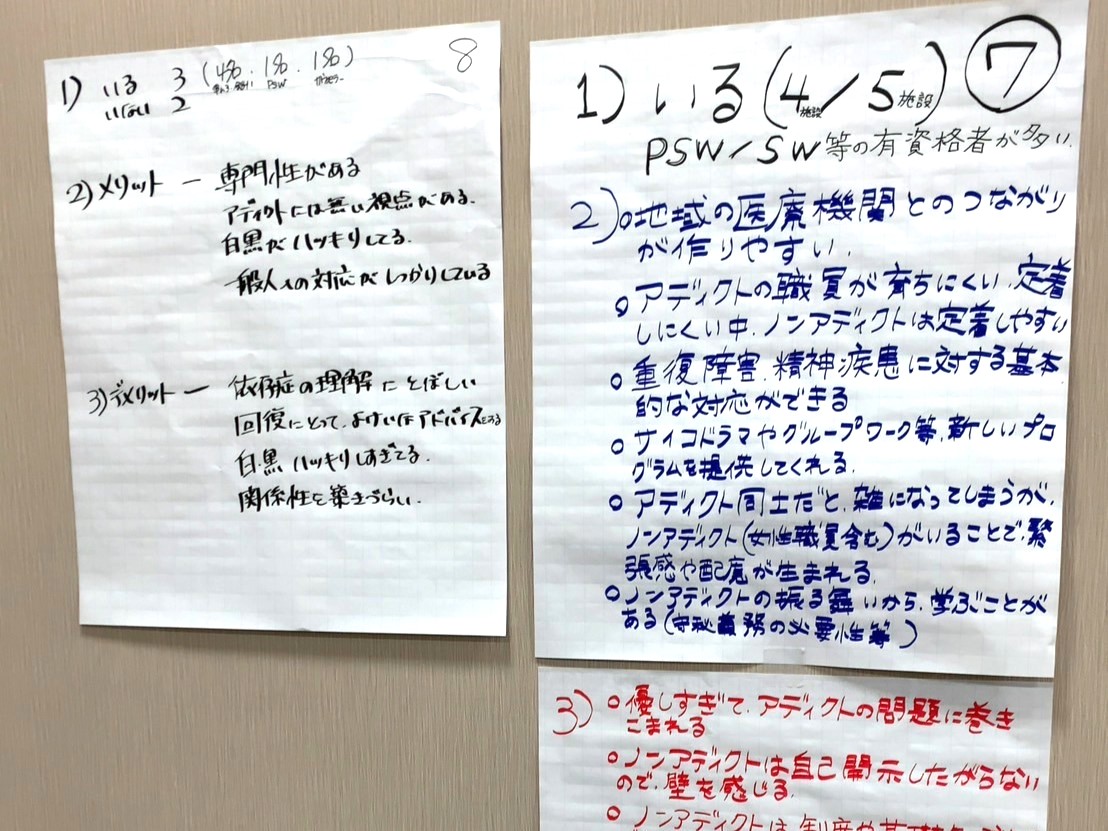 8
1) いる 3 (4名・1名・1名)
PSW
いない 2
2) メリット ー 専門性がある
アディクトには無い視点がある.
白黒がハッキリしてる.
一般人への対応がしっかりしている
3) デメリット ー 依存症の理解にとぼしい
回復にとって、よけいなアドバイスをする
白黒ハッキリしすぎてる.
関係性を築きづらい.
⑦
1) いる (4施設/5施設)
PSW/SW等の有資格者が多い.
2)○地域の医療機関とのつながり
が作りやすい.
○アディクトの職員が育ちにくい、定着
しにくい中、ノンアディクトは定着しやすい
○重複障害、精神疾患に対する基本
的な対応ができる
○サイコドラマやグループワーク等、新しいプロ
グラムを提供してくれる.
○アディクト同士だと、雑になってしまうが、
ノンアディクト(女性職員含む)がいることで、緊
張感や配慮が生まれる.
○ノンアディクトの振る舞いから、学ぶことが
ある(守秘義務の必要性等)
3) ○優しすぎて、アディクトの問題に巻き
こまれる
○ノンアディクトは自己開示したがらない
ので、壁を感じる.
○ノンアディクトは、制度や